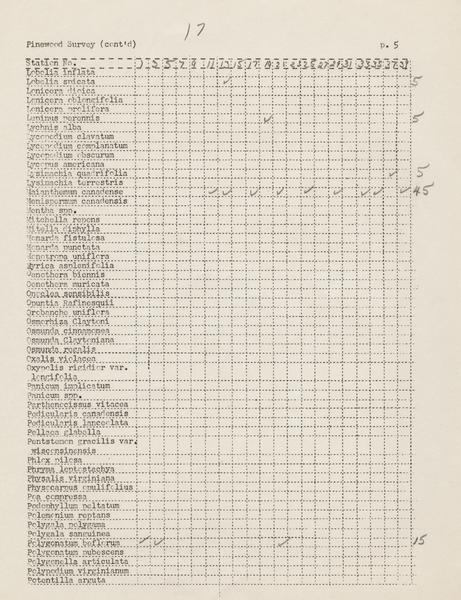 17
Pinewood Survey (cont'd) p. 5
Station No.
Lobelia inflata
Lobelia spicata ✓ 5
Lonicera dioica
Lonicera oblongifolia
Lonicera prolifera
Lupinus perennis ✓ 5
Lychnis alba
Lycopodium clavatum
Lycopodium complanatum
Lycopodium obscurum
Lycopus americana
Lysimachia quadrifolia ✓ 5
Lysimachia terrestris
Maianthemum canadense ✓ ✓ ✓ ✓ ✓ ✓ ✓ ✓ ✓ 45
Menispermum canadensis
Mentha spp.
Mitchella repens
Mitella diphylla
Monarda fistulosa
Monarda punctata
Monotropa uniflora
Myrica asplenifolia
Oenothera biennis
Oenothera muricata
Onoclea sensibilis
Opuntia Rafinesquii
Orobanche uniflora
Osmorhiza Claytoni
Osmunda cinnamonea
Osmunda Claytoniana
Osmunda regalis
Oxalis violacea
Oxypolis rigidior var.
longifolia
Panicum implicatum
Panicum spp.
Parthenocissus vitacea
Pedicularis canadensis
Pedicularis lanceolata
Pellaea glabella
Pentstemon gracilis var.
wisconsinensis
Phlox pilosa
Phryma leptostachya
Physalis virginiana
Physocarpus opulifolius
Poa compressa
Podophyllum peltatum
Polemonium reptans
Polygala polygama
Polygala sanguinea
Polygonatum boflorum ✓ ✓ ✓ 15
Polygonatum pubescens
Polygonella articulata
Polypodium virginianum
Potentilla arguta